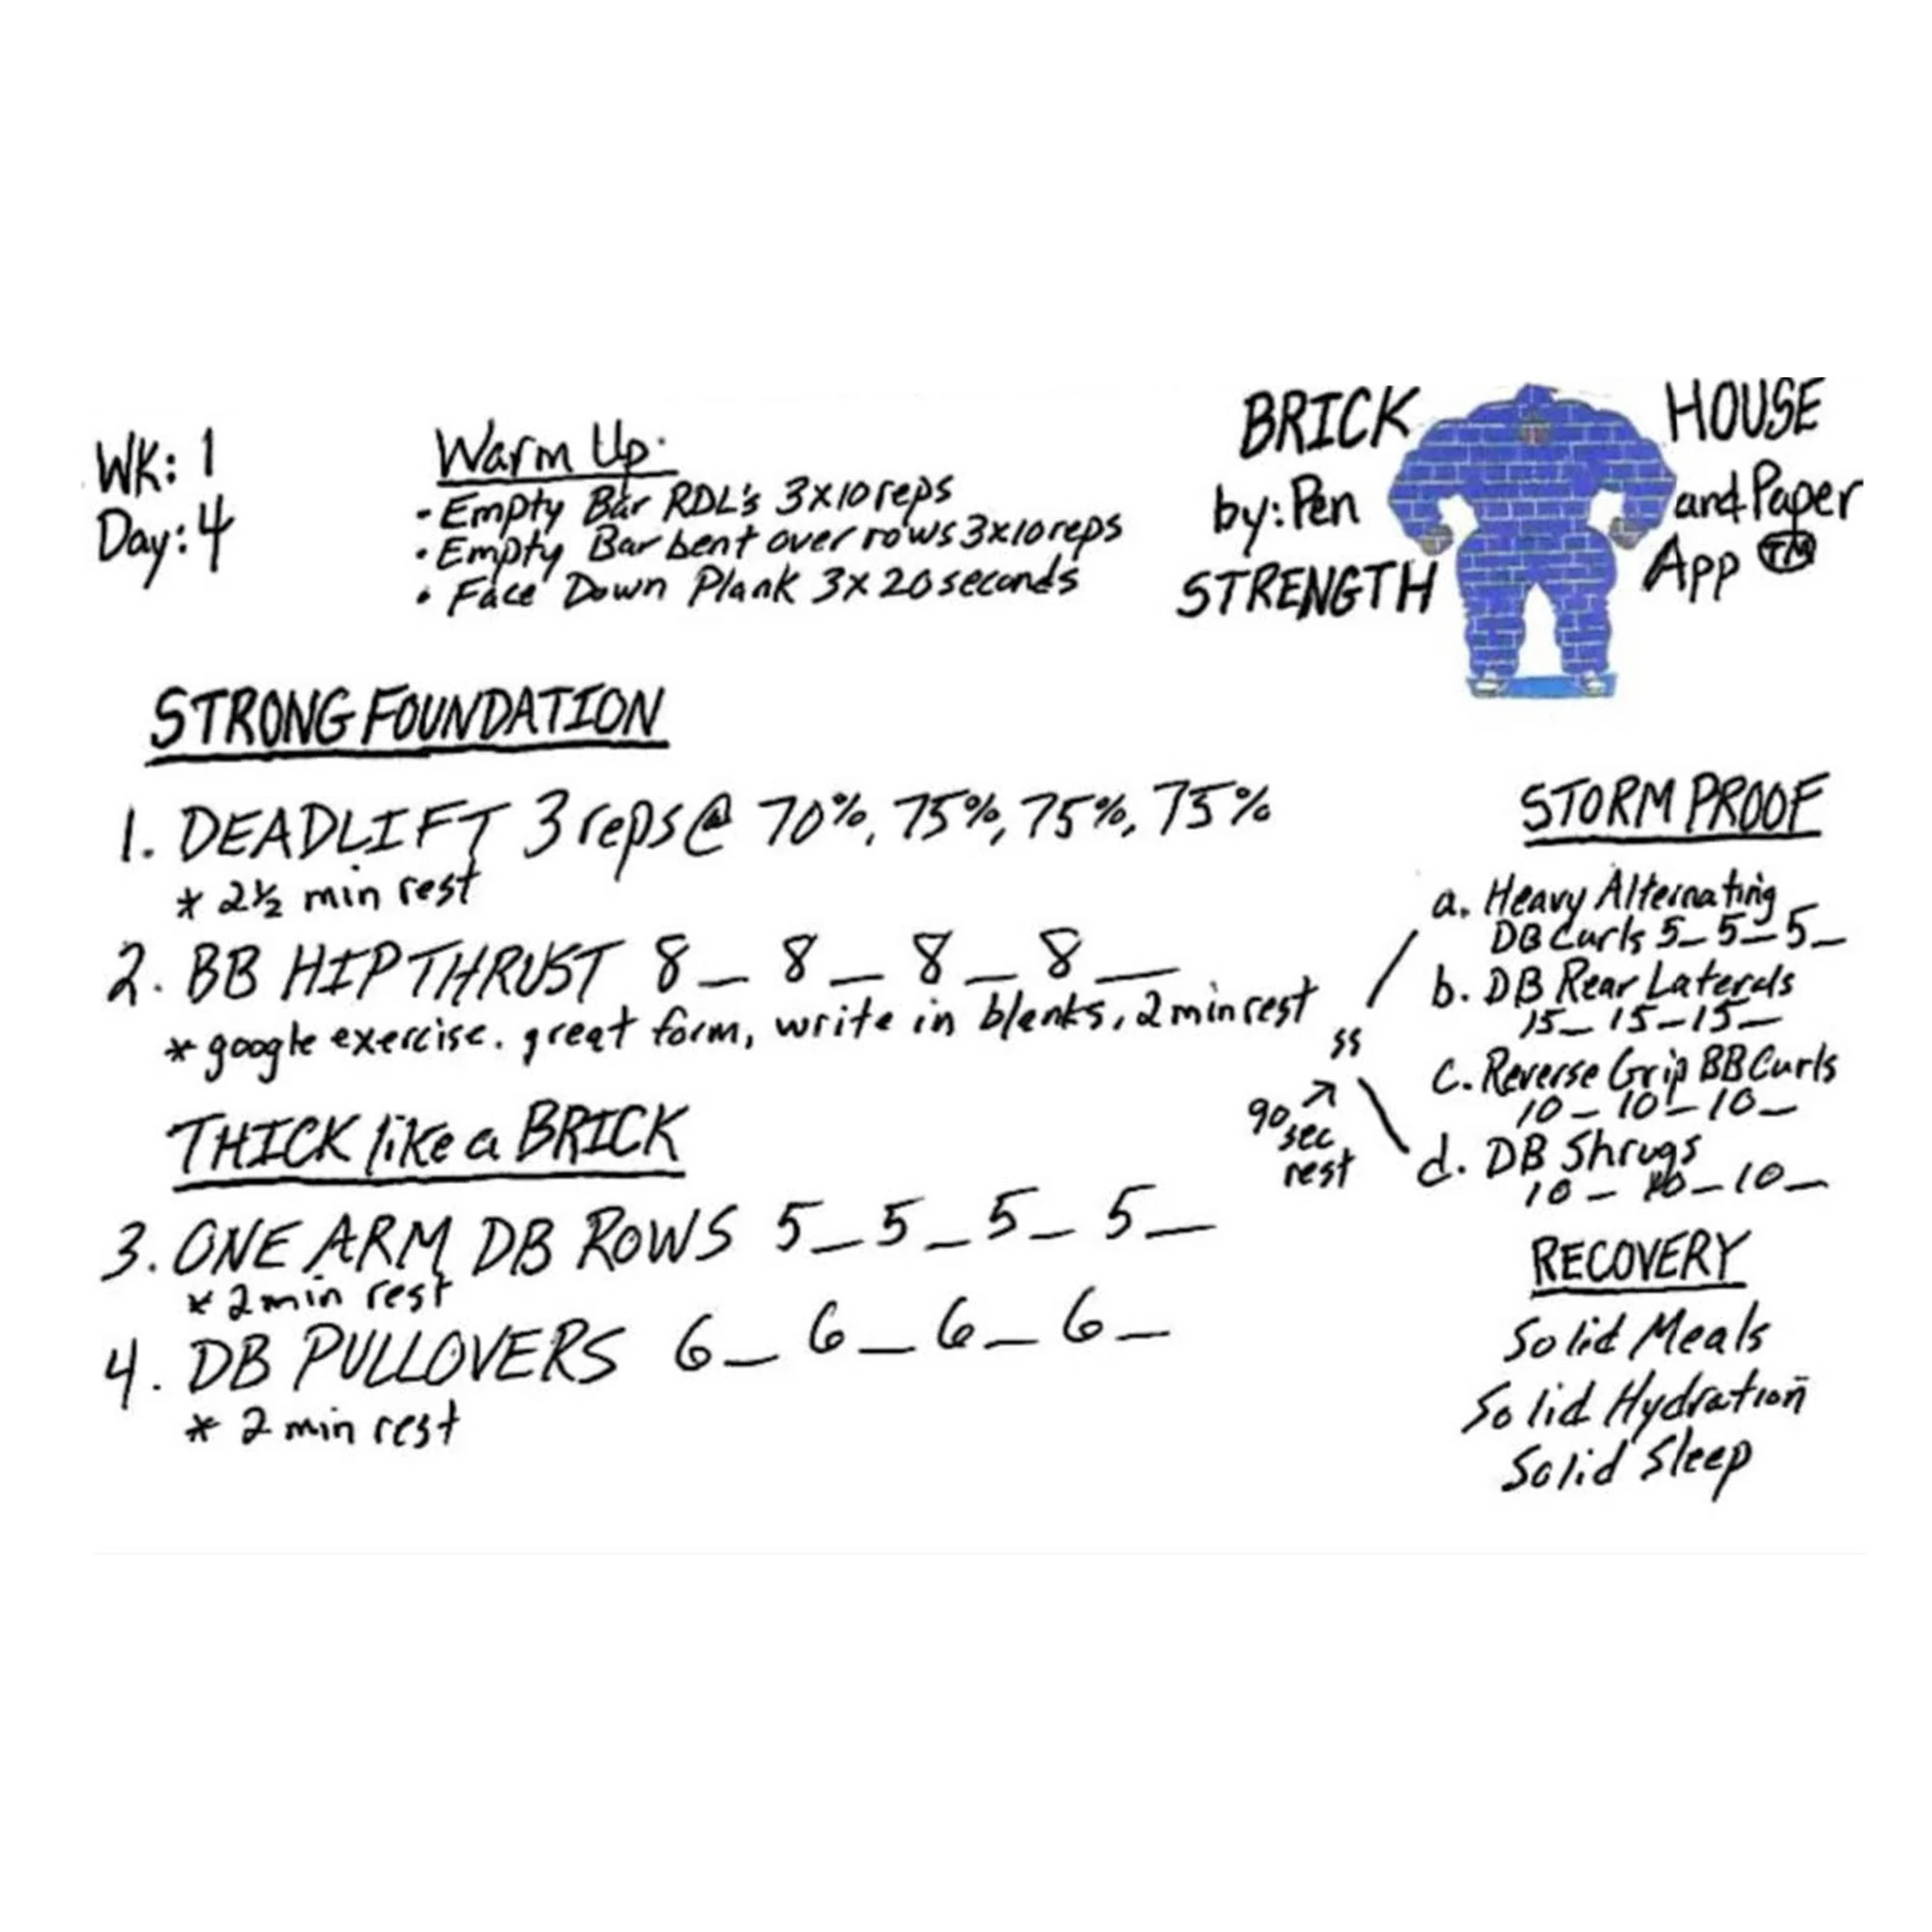 WK: 1
Day: 4
Warm Up:
- Empty Bar RDL's 3x10 reps
• Empty Bar bent over rows 3x10 reps
• Face Down Plank 3x20 seconds
BRICK HOUSE
by: Pen and Paper
STRENGTH App TM
STRONG FOUNDATION
1. DEADLIFT 3 reps @ 70%, 75%, 75%, 75%
* 2½ min rest
2. BB HIP THRUST 8_ 8_ 8_ 8_
* google exercise. great form, write in blanks, 2 min rest
THICK like a BRICK
3. ONE ARM DB ROWS 5_ 5_ 5_ 5_
* 2 min rest
4. DB PULLOVERS 6_ 6_ 6_ 6_
* 2 min rest
STORM PROOF
a. Heavy Alternating
DB Curls 5_ 5_ 5_
b. DB Rear Laterals
15_ 15_ 15_
c. Reverse Grip BB Curls
10_ 10_ 10_
d. DB Shrugs
10_ 10_ 10_
ss
90
sec
rest
RECOVERY
Solid Meals
Solid Hydration
Solid Sleep